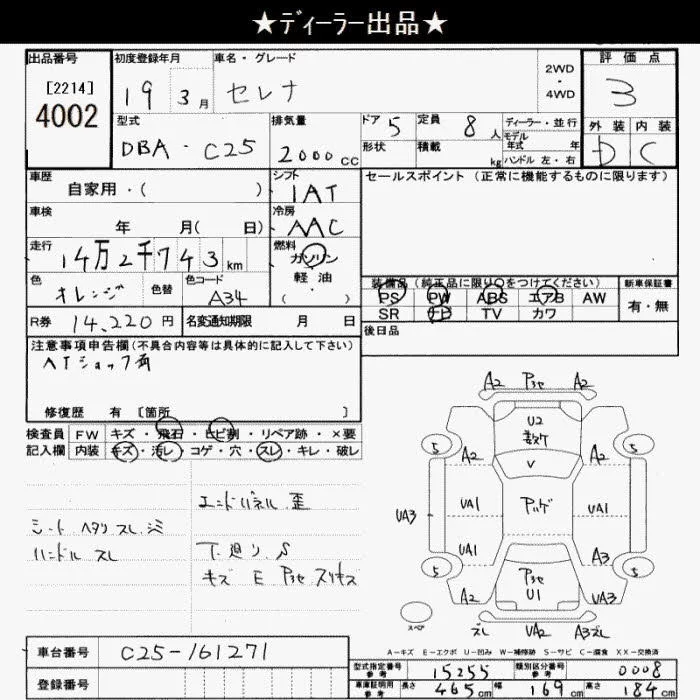 ★ディーラー出品★
出品番号 初度登録年月 車名・グレード 2WD ・ 4WD 評価点
[2214] 4002 19 3月 セレナ 3
型式 排気量 ドア 5 定員 8人 ディーラー・並行 外装 内装
DBA-C25 2000cc 形状 積載 kg モデル年式 年 D C
ハンドル 左・右
車歴 自家用・( ) シフト IAT セールスポイント (正常に機能するものに限ります)
車検 年 月( 日) 冷房 AAC
走行 14万2千743km 燃料 ガソリン 軽油 ( )
色 オレンジ 色替 色コード A34
装備品(純正品に限り○をつけてください) 新車保証書
PS PW ABS エアB AW 有・無
SR ナビ TV カワ
R券 14,220円 名変通知期限 月 日 後日品
注意事項申告欄(不具合内容等は具体的に記入して下さい)
ATショック有
修復歴 有 [箇所 ]
検査員 FW キズ・飛石・ヒビ割・リペア跡・×要
記入欄 内装 キズ・汚レ・コゲ・穴・スレ・キレ・破レ
エンドパネル 歪
シート ヘタリ スレ シミ
ハンドル スレ
下廻リ S
キズ E
A2 A2
U2
5 5
A2 V A2
UA3 UA1 UA1
UA1 A3
5 5
A2 U1 UA3
スペア ズレ UA2 A3ズレ
A-キズ E-エクボ U-凹み W-補修跡 S-サビ C-腐食 XX-交換済
車台番号 C25-161271
型式指定番号 参考 15255 類別区分番号 参考 0008
登録番号
車庫証明用 参考 長さ 465cm 幅 169cm 高さ 184cm